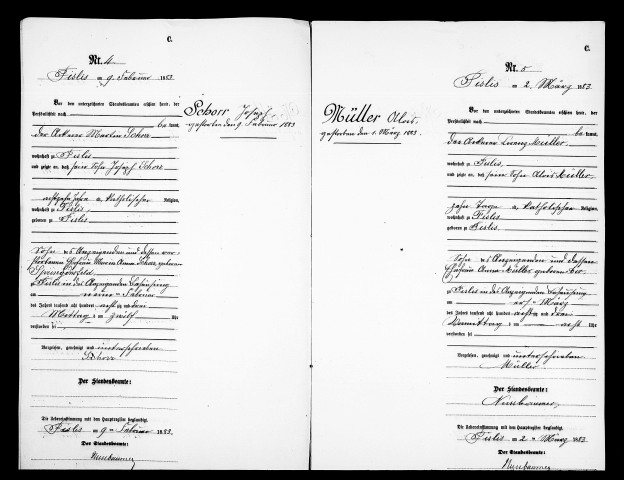 C.
Nr. 4
Fislis am 9. Februar 1883
Vor dem unterzeichneten Standesbeamten erschien heute, der
Persönlichkeit nach
bekannt,
der Ackerer Martin Schorr
wohnhaft zu Fislis
und zeigte an, daß sein Sohn Josef Schorr
Jahre alt, katholischer Religion,
wohnhaft zu Fislis
geboren zu Fislis
Sohn des Anzeigenden und dessen
Ehefrau Maria Anna Schorr geborenen
zu Fislis in des Anzeigenden Behausung
am neunten Februar
des Jahres tausend acht hundert achtzig und drei
Mittag um zwölf Uhr
verstorben sei
Vorgelesen, genehmigt und unterschrieben
Schorr
Der Standesbeamte:
Die Uebereinstimmung mit dem Hauptregister beglaubigt.
Fislis am 9ten Februar 1883.
Der Standesbeamte:
Nussbaumer
Schorr Josef,
gestorben den 9. Februar 1883
Müller Alois,
gestorben den 1. März 1883.
C.
Nr. 5
Fislis am 2. März 1883.
Vor dem unterzeichneten Standesbeamten erschien heute, der
Persönlichkeit nach
bekannt,
der Ackerer Lorenz Müller
wohnhaft zu Fislis
und zeigte an, daß sein Sohn Alois Müller,
zehn Tage alt, katholischer Religion,
wohnhaft zu Fislis
geboren zu Fislis
Sohn des Anzeigenden und dessen
Ehefrau Anna Müller geborenen
zu Fislis in des Anzeigenden Behausung
am ersten März
des Jahres tausend acht hundert achtzig und drei
Vormittag um acht Uhr
verstorben sei
Vorgelesen, genehmigt und unterschrieben
Müller
Der Standesbeamte:
Nussbaumer
Die Uebereinstimmung mit dem Hauptregister beglaubigt.
Fislis am 2ten März 1883
Der Standesbeamte:
Nussbaumer